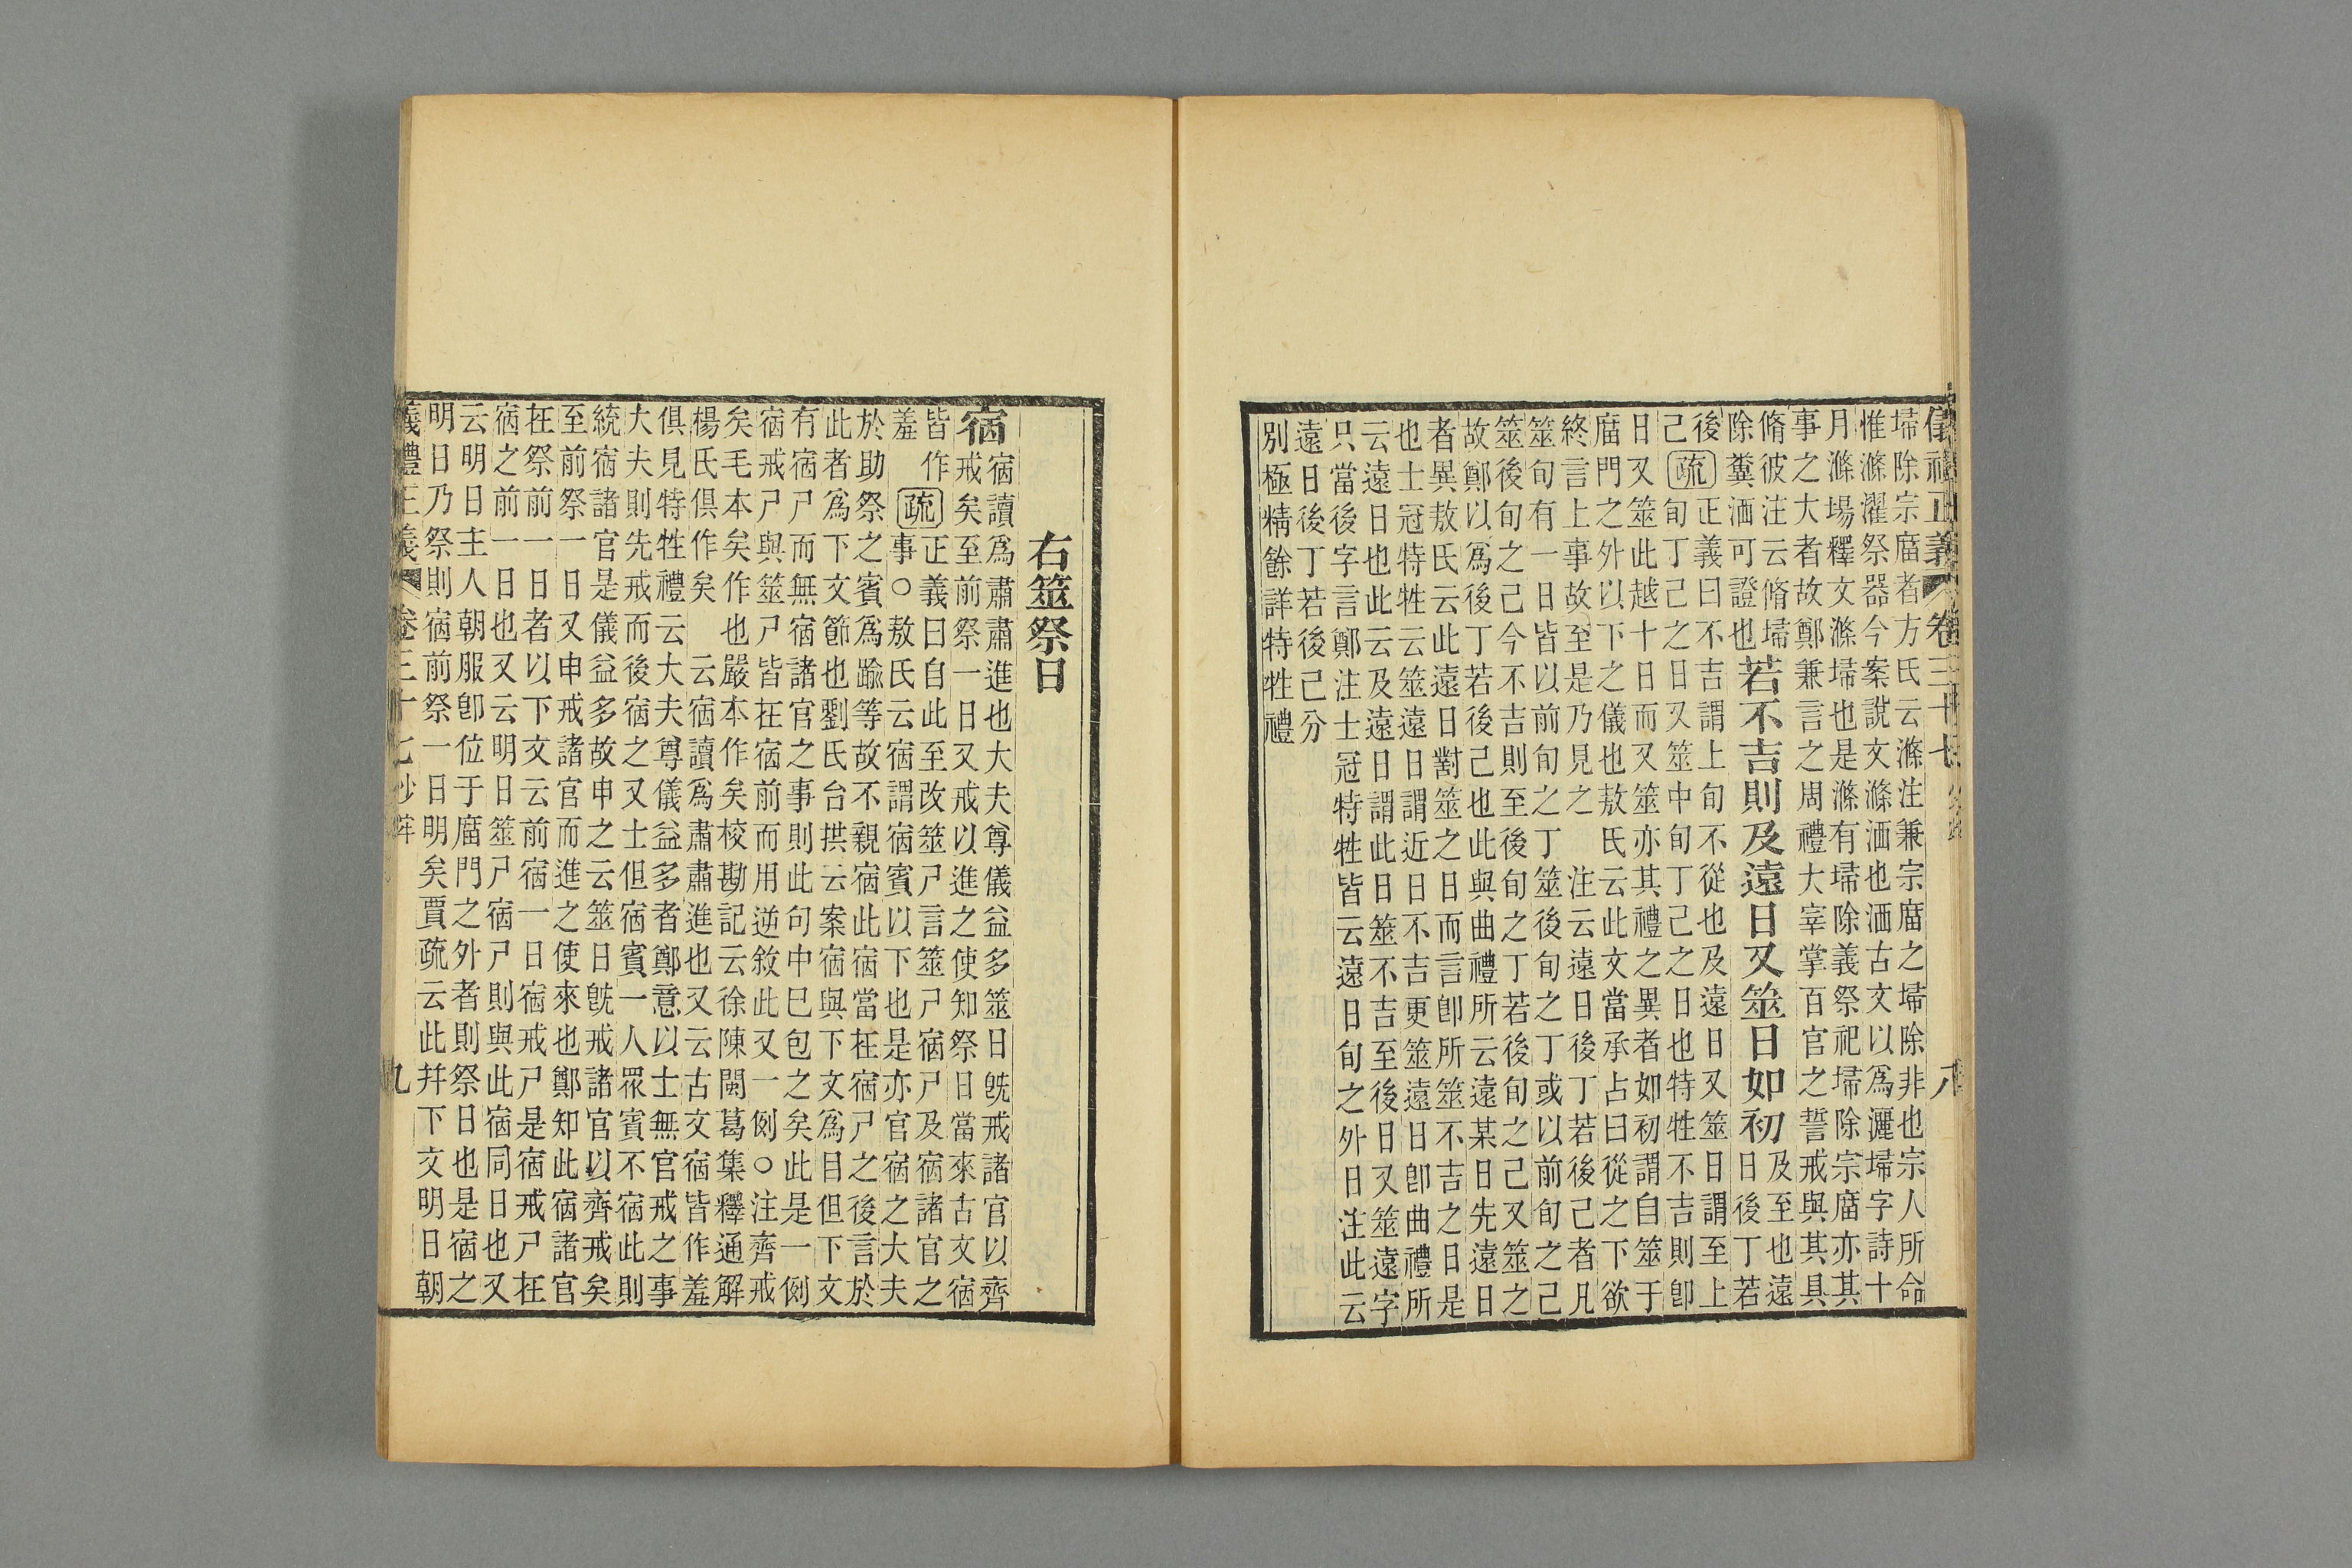 儀禮正義 卷三十七 八
埽除宗廟者方氏云滌注兼宗廟之埽除非也宗人所命
惟滌濯祭器今案說文滌洒也洒古文以爲灑埽字詩十
月滌場釋文滌埽也是滌有埽除義祭祀埽除宗廟亦其
事之大者故鄭兼言之周禮大宰掌百官之誓戒與其具
脩彼注云脩埽
除糞洒可證也
若不吉則及遠日又筮日如初
及至也遠
日後丁若
後
己
疏
正義曰不吉謂上旬不從也及遠日又筮日謂至上
旬丁己之日又筮中旬丁己之日也特牲不吉則卽
日又筮此越十日而又筮亦其禮之異者如初謂自筮于
廟門之外以下之儀也敖氏云此文當承占曰從之下欲
終言上事故至是乃見之　注云遠日後丁若後己者凡
筮旬有一日皆以前旬之丁筮後旬之丁或以前旬之己
筮後旬之己今不吉則至後旬之丁若後旬之己又筮之
故鄭以爲後丁若後己也此與曲禮所云遠某日先遠日
者異敖氏云此遠日對筮之日而言卽所筮不吉之日是
也士冠特牲云筮遠日謂近日不吉更筮遠日卽曲禮所
云遠日也此云及遠日謂此日筮不吉至後日又筮遠字
只當後字言鄭注士冠特牲皆云遠日旬之外日注此云
遠日後丁若後己分
別極精餘詳特牲禮
右筮祭日
宿
宿讀爲肅肅進也大夫尊儀益多筮日旣戒諸官以齊
戒矣至前祭一日又戒以進之使知祭日當來古文宿
皆作
羞
疏
正義曰自此至改筮尸言筮尸宿尸及宿諸官之
事○敖氏云宿謂宿賓以下也是亦官宿之大夫
於助祭之賓爲踰等故不親宿此宿當在宿尸之後言於
此者爲下文節也劉氏台拱云案宿與下文爲目但下文
有宿尸而無宿諸官之事則此句中已包之矣此是一例
宿戒尸與筮尸皆在宿前而用逆敘此又一例○注齊戒
矣毛本矣作也嚴本作矣校勘記云徐陳閩葛集釋通解
楊氏俱作矣　云宿讀爲肅肅進也又云古文宿皆作羞
俱見特牲禮云大夫尊儀益多者鄭意以士無官戒之事
大夫則先戒而後宿之又士但宿賓一人眾賓不宿此則
統宿諸官是儀益多故申之云筮日旣戒諸官以齊戒矣
至前祭一日又申戒諸官而進之使來也鄭知此宿諸官
在祭前一日者以下文云前宿一日宿戒尸是宿戒尸在
宿之前一日也又云明日筮尸宿尸則與此宿同日也又
云明日主人朝服卽位于廟門之外者則祭日也是宿之
明日乃祭則宿前祭一日明矣賈疏云此并下文明日朝
儀禮正義 卷三十七 少牢 九